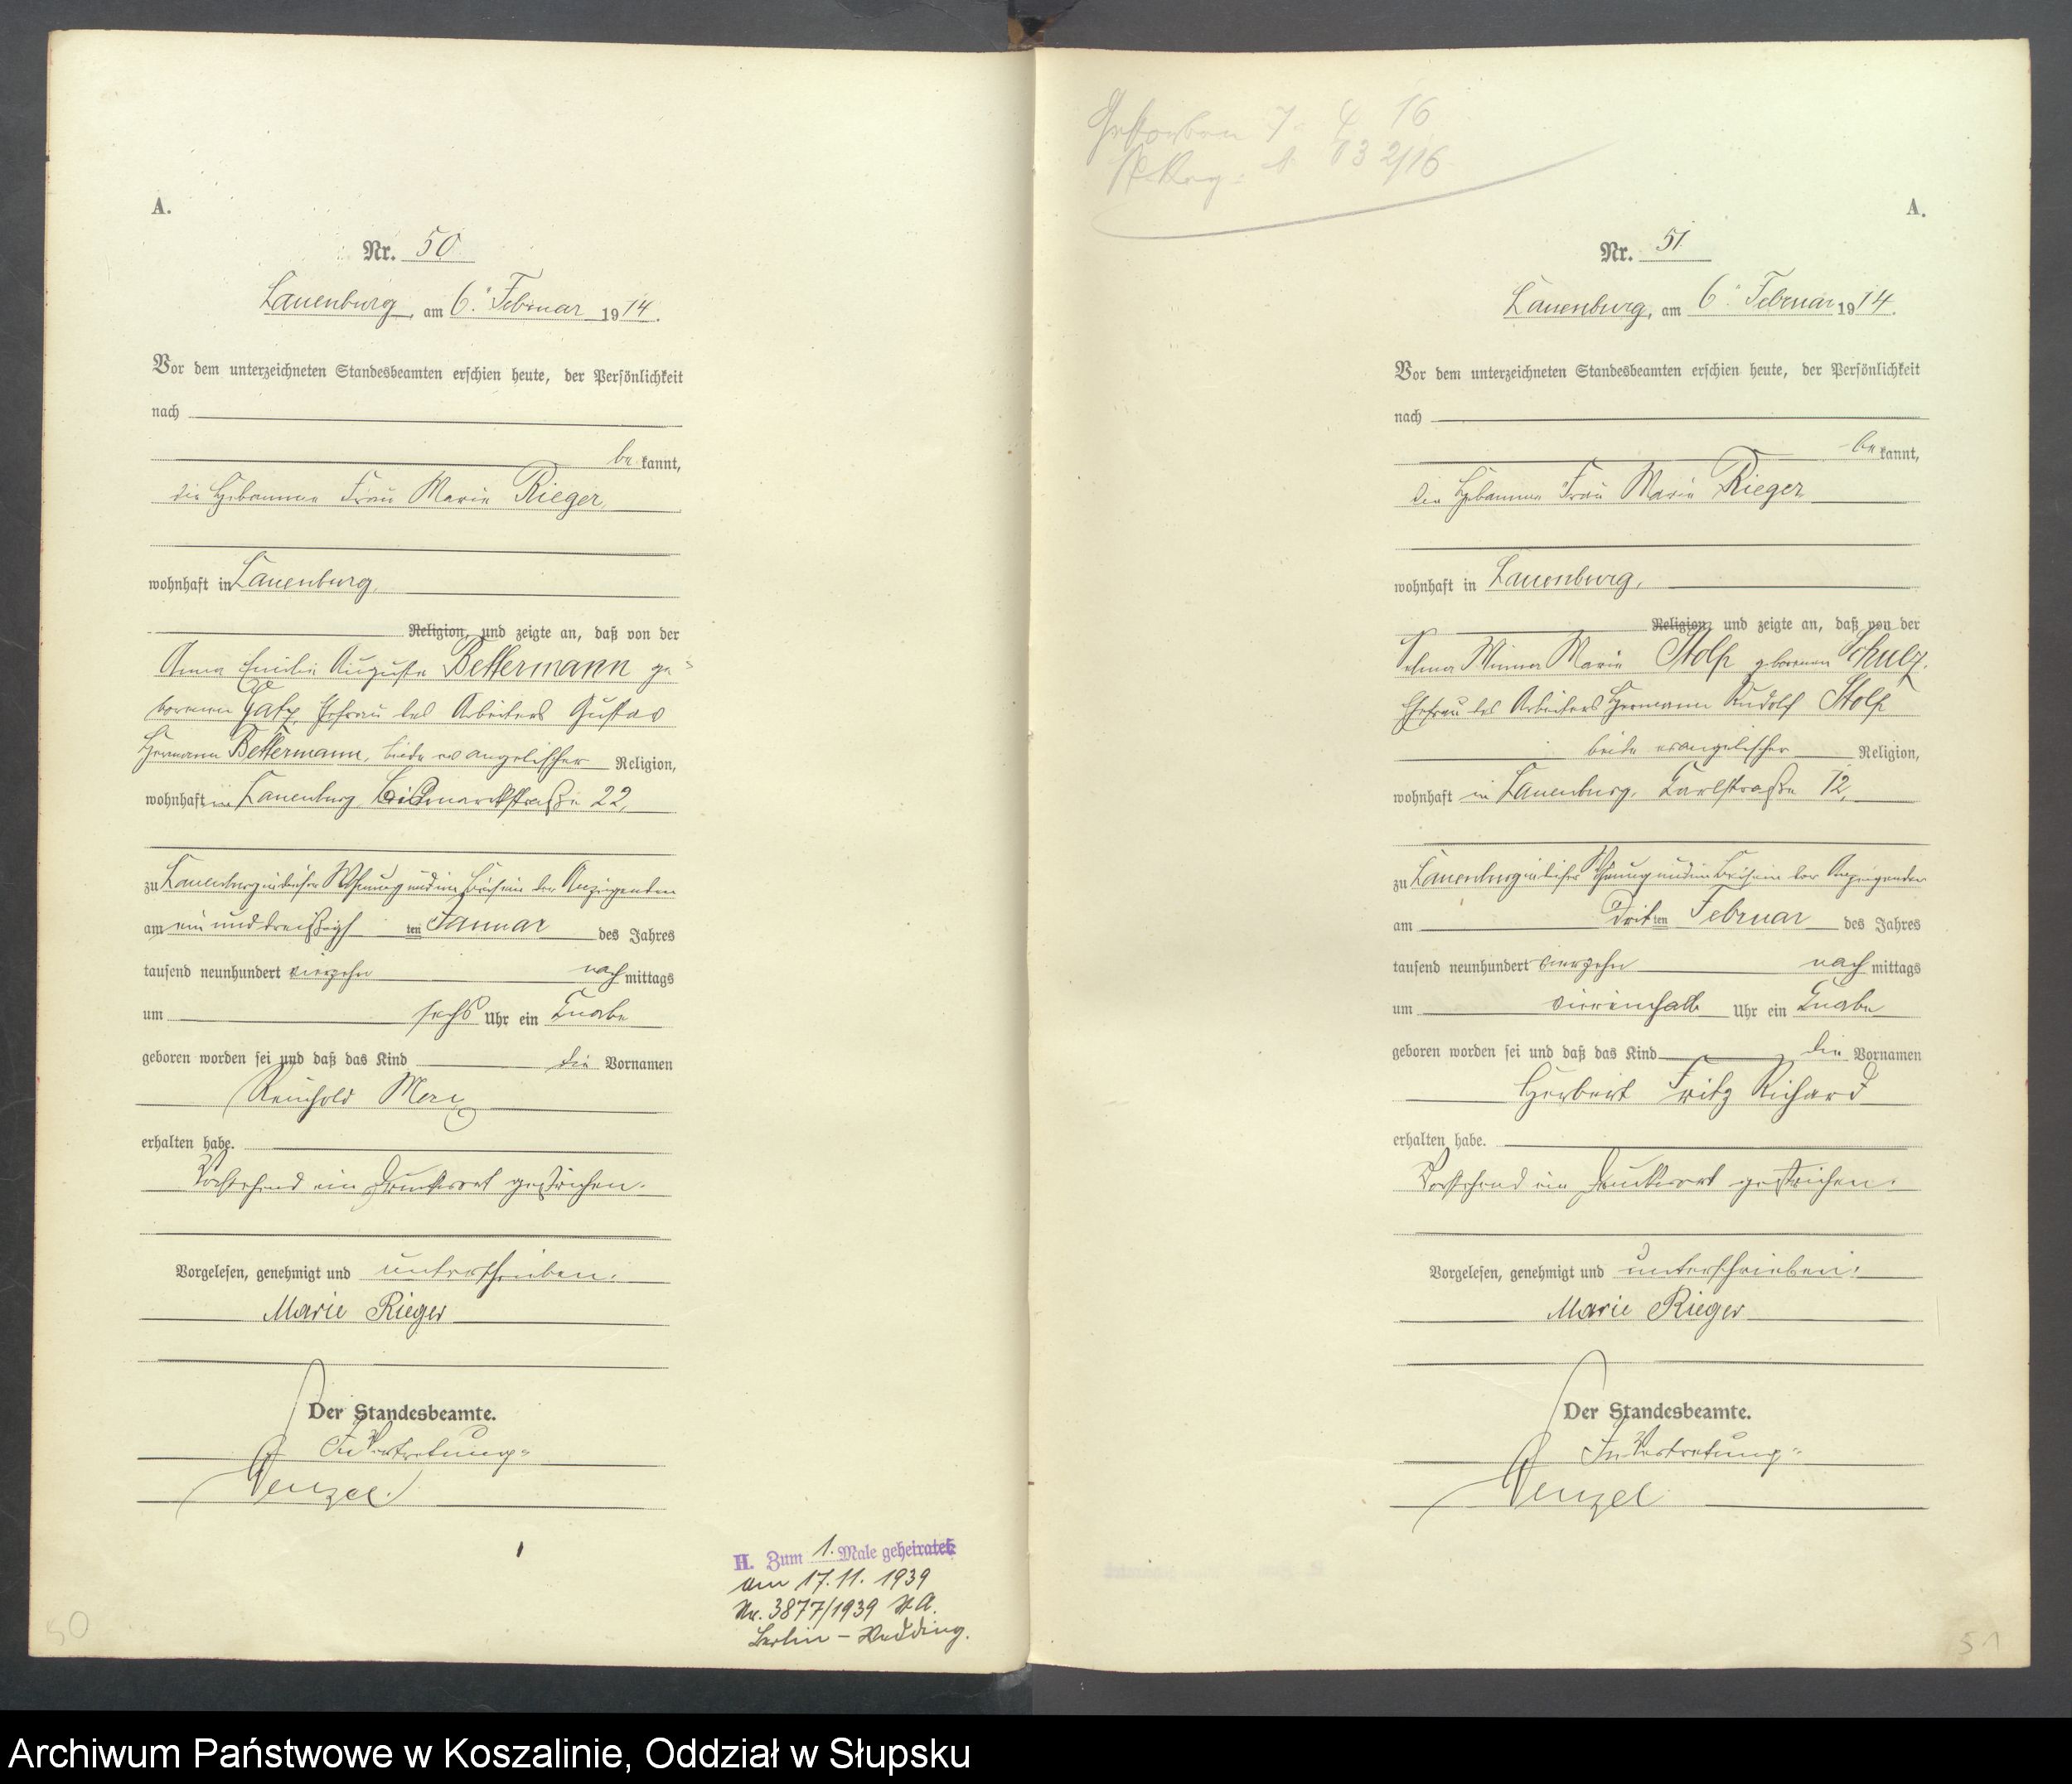 A.
Nr. 50
Lauenburg, am 6. Februar 1914.
Vor dem unterzeichneten Standesbeamten erschien heute, der Persönlichkeit
nach
be kannt,
die Hebamme Frau Marie Rieger,
wohnhaft in Lauenburg,
Religion, und zeigte an, daß von der
Anna Emilie Auguste Bettermann ge-
borenen Ehefrau des Arbeiters Gustav
Hermann Bettermann, beide evangelischer Religion,
wohnhaft in Lauenburg Bismarckstraße 22,
zu Lauenburg in dieser Wohnung und im Beisein der Anzeigenden
am ein und dreißigsten Januar des Jahres
tausend neunhundert vierzehn nachmittags
um sechs Uhr ein Knabe
geboren worden sei und daß das Kind die Vornamen
Reinhold Max
erhalten habe.
Vorstehend ein Druckwort gestrichen.
Vorgelesen, genehmigt und unterschrieben.
Marie Rieger
Der Standesbeamte.
In Vertretung:
Wenzel.
H. Zum 1. Male geheiratet
am 17.11.1939
Nr. 3877/1939 St.A.
Berlin – Wedding.
50
Gestorben 7. 4. 16
St. Reg: 132/16
A.
Nr. 51.
Lauenburg, am 6. Februar 1914.
Vor dem unterzeichneten Standesbeamten erschien heute, der Persönlichkeit
nach
be kannt,
die Hebamme Frau Marie Rieger,
wohnhaft in Lauenburg,
Religion, und zeigte an, daß von der
Selma Minna Marie Stolp geborenen Schulz,
Ehefrau des Arbeiters Hermann Rudolf Stolp
beide evangelischer Religion,
wohnhaft in Lauenburg, Karlstraße 12,
zu Lauenburg in dieser Wohnung und im Beisein der Anzeigenden
am dritten Februar des Jahres
tausend neunhundert vierzehn nachmittags
um viereinhalb Uhr ein Knabe
geboren worden sei und daß das Kind die Vornamen
Herbert Fritz Richard
erhalten habe.
Vorstehend ein Druckwort gestrichen.
Vorgelesen, genehmigt und unterschrieben.
Marie Rieger
Der Standesbeamte.
In Vertretung:
Wenzel
51
Archiwum Państwowe w Koszalinie, Oddział w Słupsku